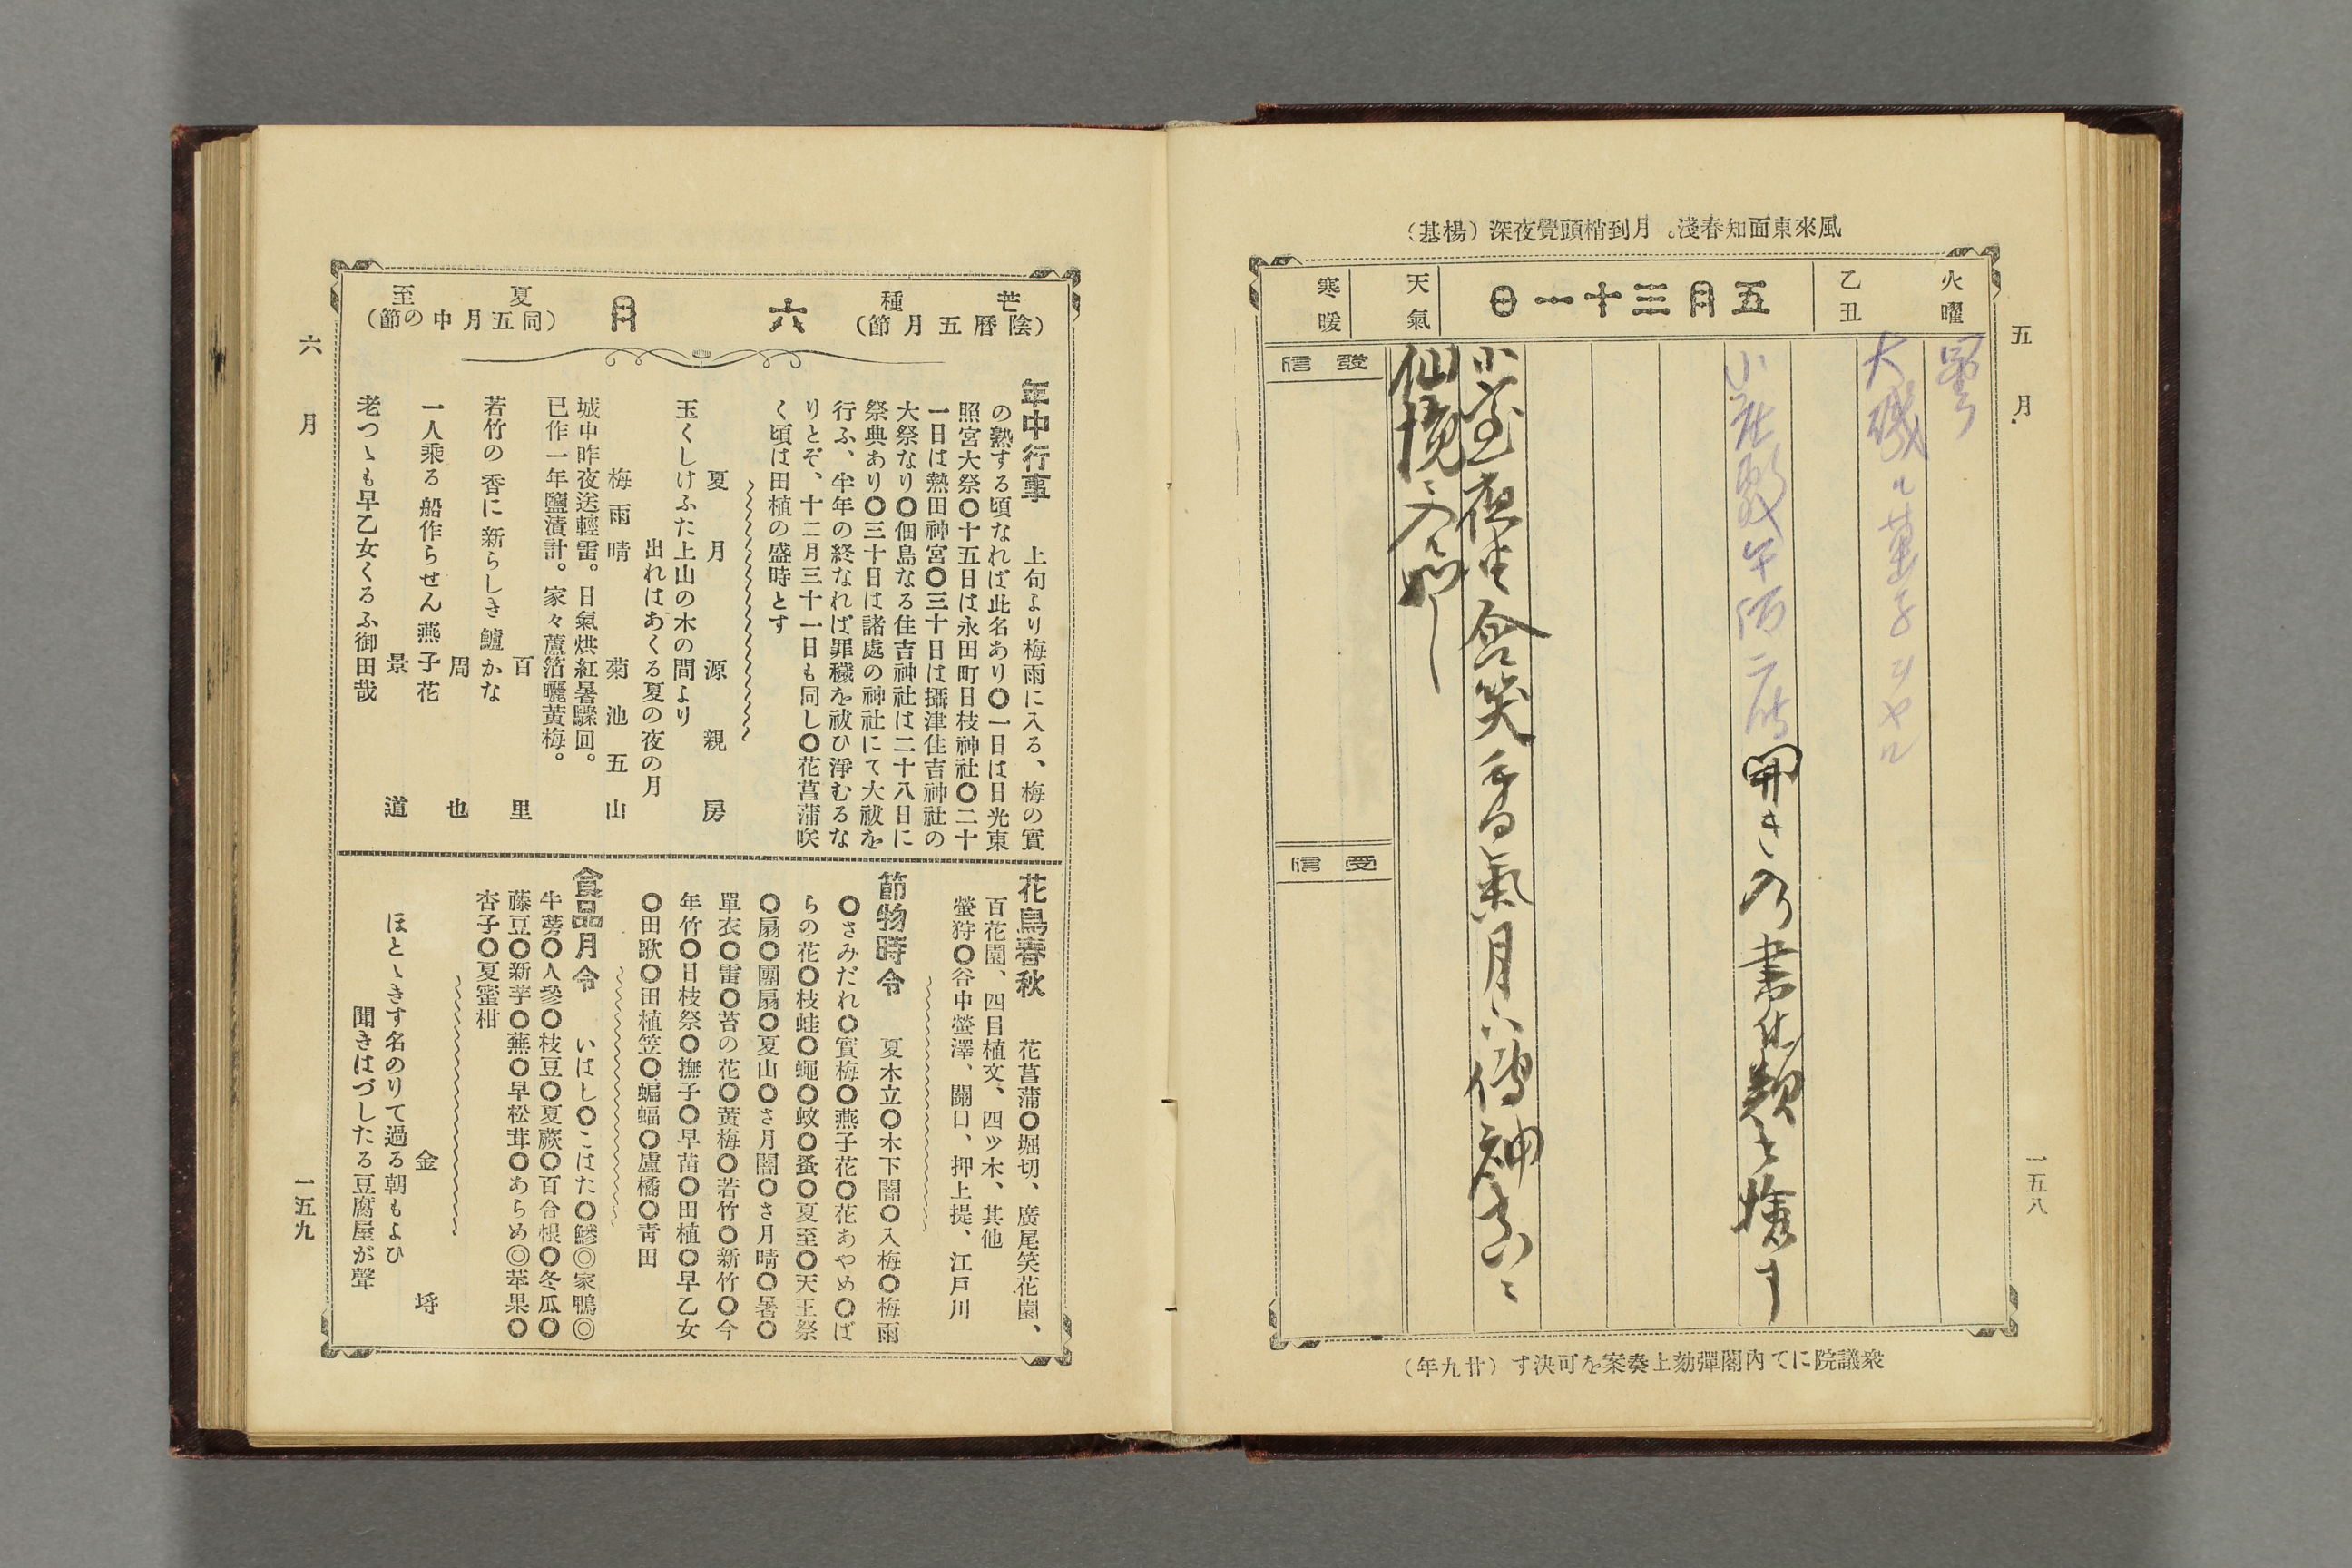 風來東面知春淺。月到梢頭覺夜深（楊基）
五月
一五八
火曜
乙丑
五月三十一日
天氣
寒暖
發信
受信
曇
大磯
開き
書
含笑
香氣月
仙境ニ入ルか如し
衆議院にて內閣彈劾上奏案を可決す（廿九年）
六月
一五九
芒種
（陰曆五月節）
六月
夏至
（同五月中の節）
年中行事　上旬より梅雨に入る、梅の實
の熟する頃なれば此名あり〇一日は日光東
照宮大祭〇十五日は永田町日枝神社〇二十
一日は熱田神宮〇三十日は攝津住吉神社の
大祭なり〇佃島なる住吉神社は二十八日に
祭典あり〇三十日は諸處の神社にて大祓を
行ふ、半年の終なれば罪穢を祓ひ淨むるな
りとぞ、十二月三十一日も同し〇花菖蒲咲
く頃は田植の盛時とす
夏月　源親房
玉くしけふた上山の木の間より
出れはあくる夏の夜の月
梅雨晴　菊池五山
城中昨夜送輕雷。日氣烘紅暑驟回。
已作一年鹽漬計。家々蘆箔曬黃梅。
百里
若竹の香に新らしき鱸かな
周也
一人乘る船作らせん燕子花
景道
老つゝも早乙女くるふ御田哉
花鳥春秋　花菖蒲〇堀切、廣尾笑花園、
百花園、四目植文、四ッ木、其他
螢狩〇谷中螢澤、關口、押上提、江戸川
節物時令　夏木立〇木下闇〇入梅〇梅雨
〇さみだれ〇實梅〇燕子花〇花あやめ〇ば
らの花〇枝蛙〇蠅〇蚊〇蚤〇夏至〇天王祭
〇扇〇團扇〇夏山〇さ月闇〇さ月晴〇暑〇
單衣〇雷〇苔の花〇黃梅〇若竹〇新竹〇今
年竹〇日枝祭〇撫子〇早苗〇田植〇早乙女
〇田歌〇田植笠〇蝙蝠〇盧橘〇靑田
食品月令　いばし〇こはた〇鰺◎家鴨◎
牛蒡〇人參〇枝豆〇夏蕨〇百合根〇冬瓜〇
藤豆〇新芋〇蕪〇早松茸〇あらめ◎苹果〇
杏子〇夏蜜柑
金埓
ほとゝきす名のりて過る朝もよひ
聞きはづしたる豆腐屋が聲